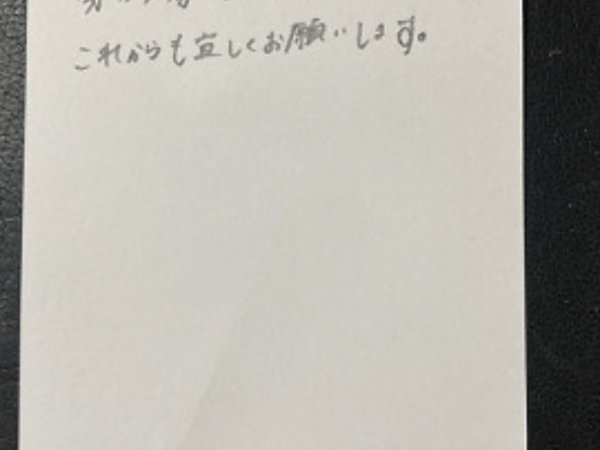 これからも宜しくお願いします。